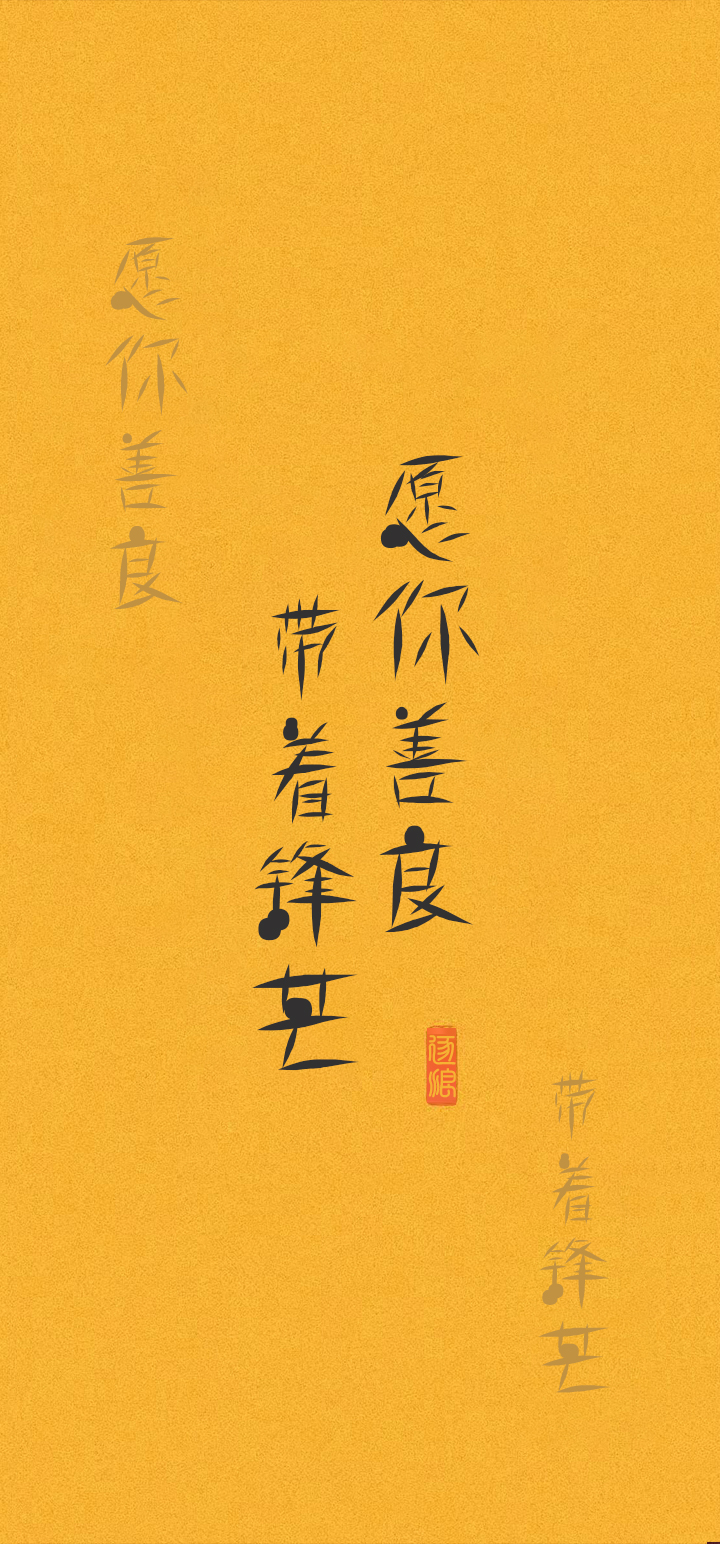 愿你善良
带着锋芒
逐浪
愿你善良
带着锋芒